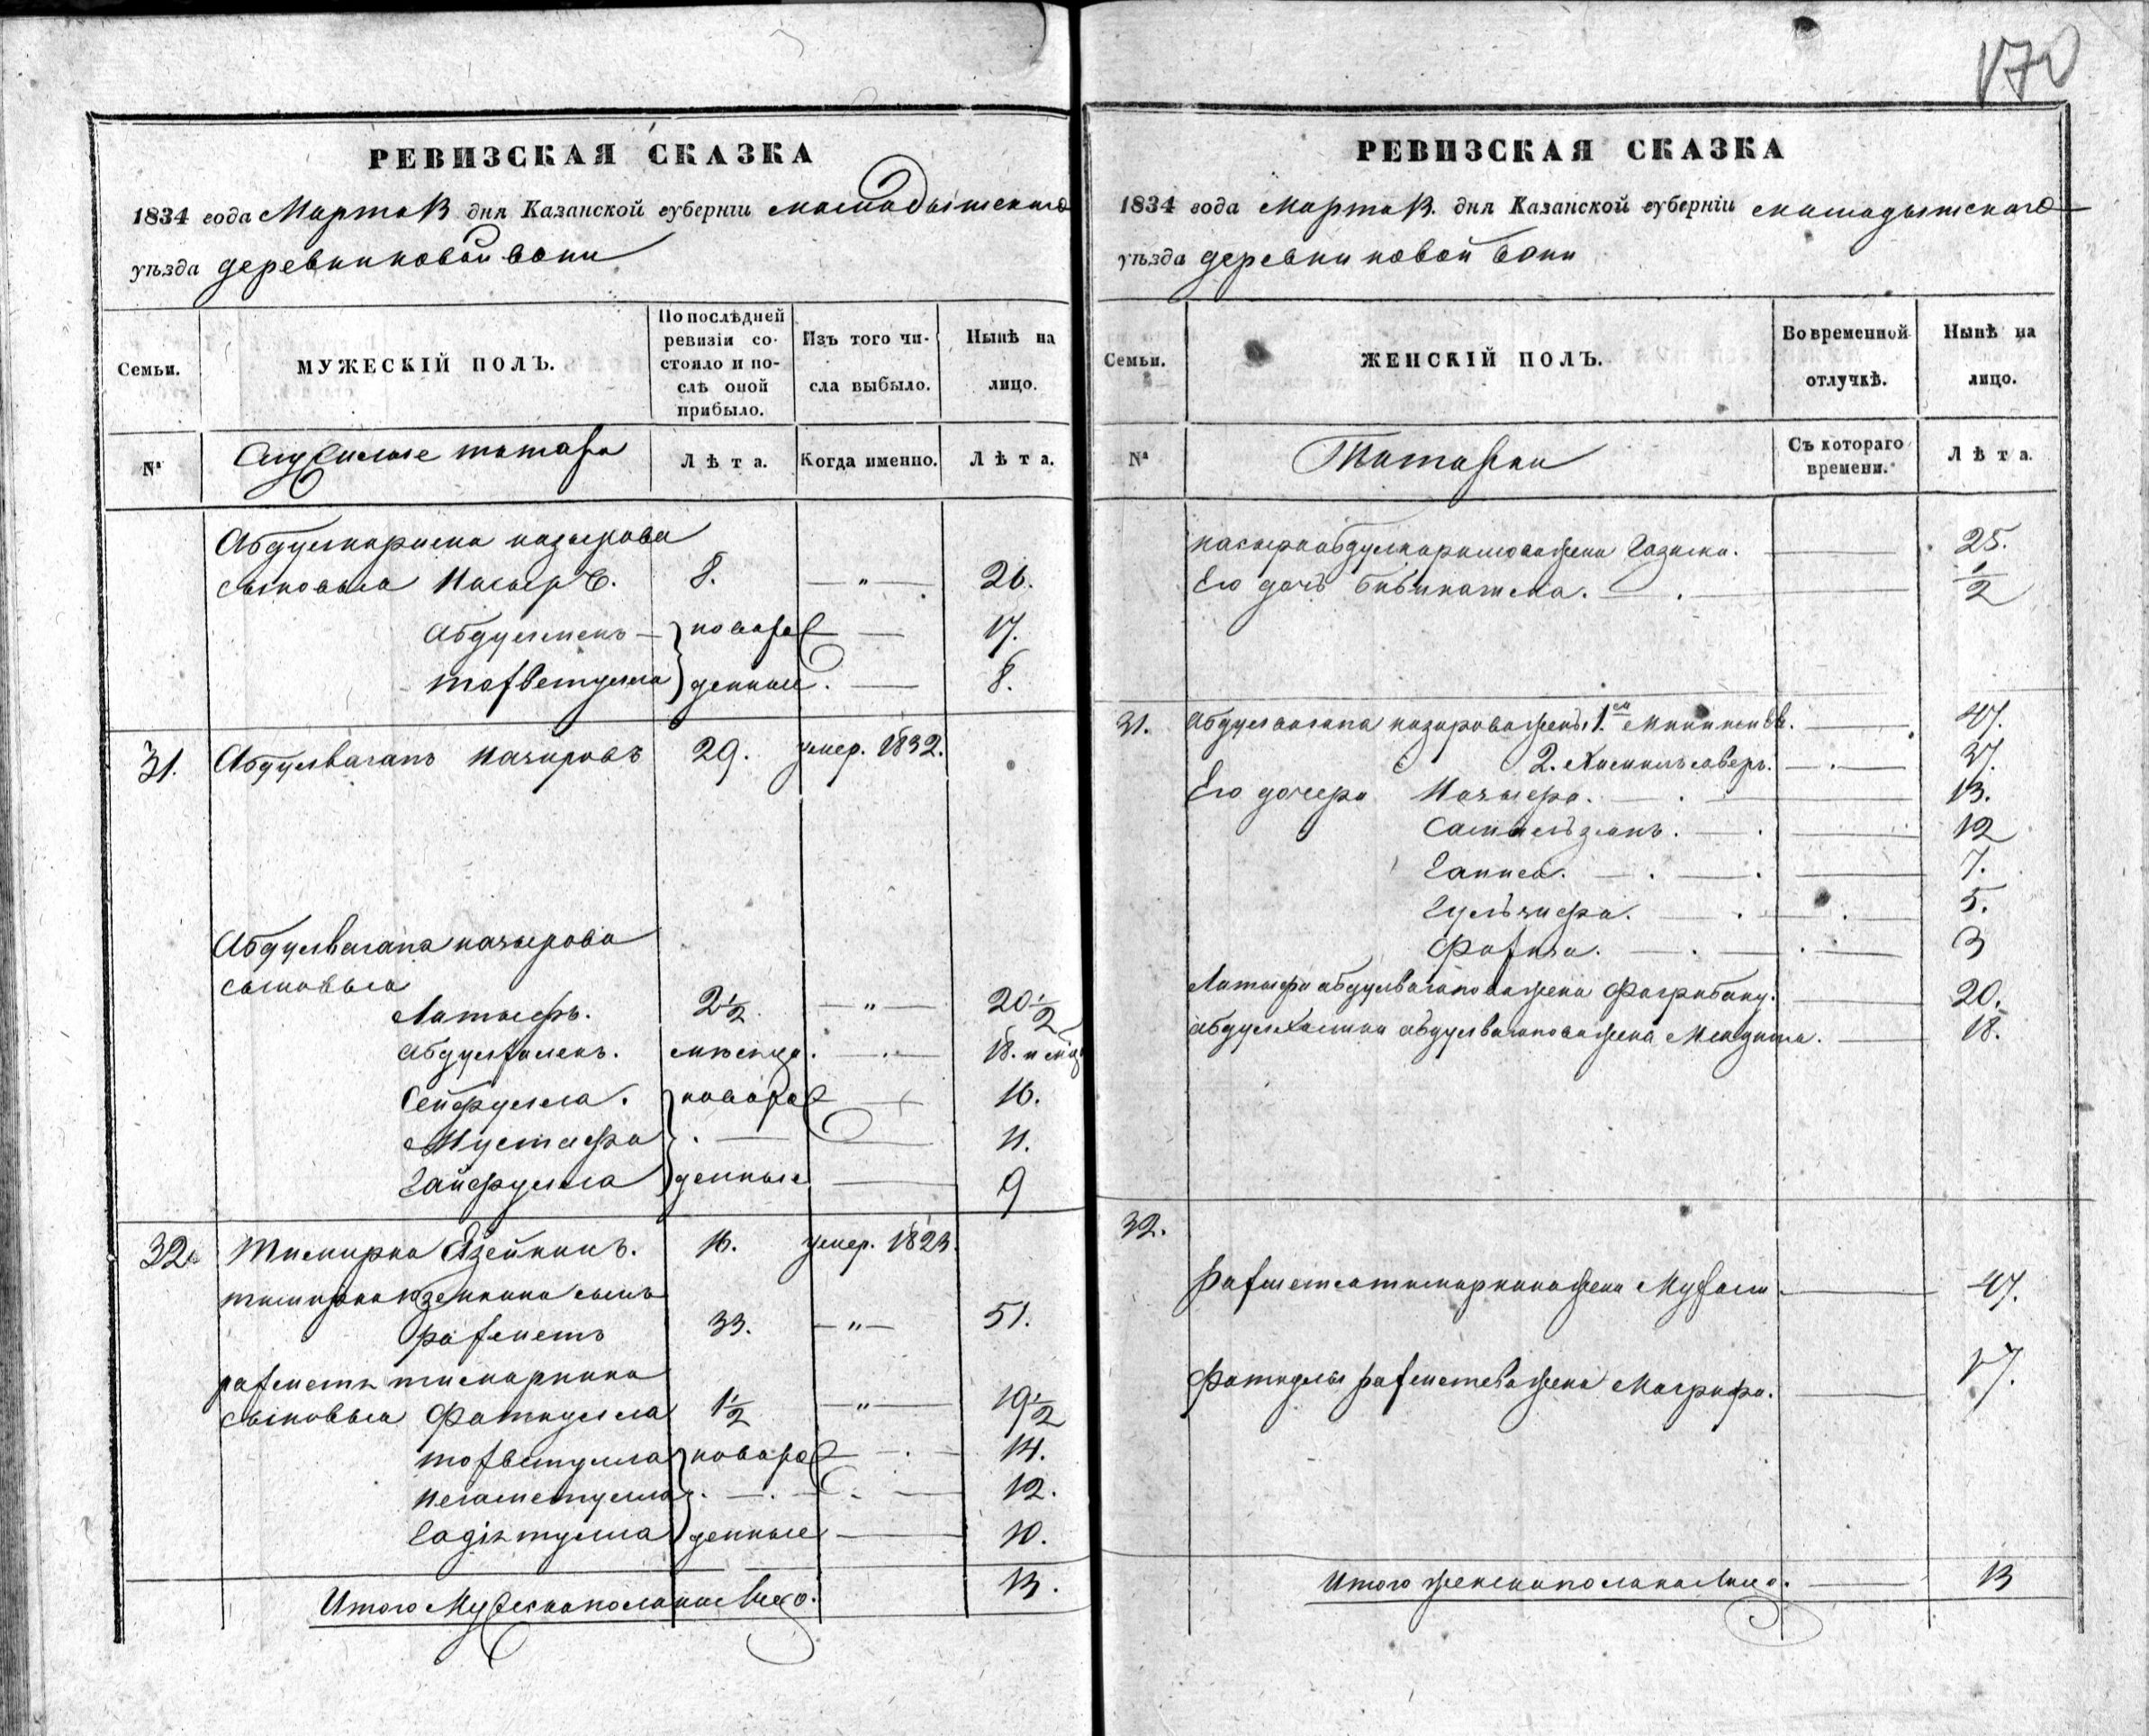 170
РЕВИЗСКАЯ СКАЗКА
1834 года Марта 13 дня Казанской губерніи мамадышскаго
уѣзда деревни новой вони
Семьи.
МУЖЕСКІЙ ПОЛЪ.
По послѣдней ревизіи состояло и послѣ оной прибыло.
Изъ того числа выбыло.
Нынѣ на лицо.
№
Служилые татара
Лѣта.
Когда именно.
Лѣта.
Абдулкарима назырова
сыновья Насыръ 8. — " — 26.
Абдул — новаро — 17.
тохветулла денные. — 8.
31. Абдулвагапъ Назировъ 29. умер. 1832.
Абдулвагапа назырова
сыновья
Латыфъ. 2 1/2 — " — 20 1/2
18. и
Сейфулла. новаро — 16.
Мустафа — 11.
Гайфулла денные — 9
32. Тимирка Язейкинъ. 16. умер. 1823.
тимирки язейкина сынъ
рахметъ 33. — " — 51.
рахметя тимиркина
сыновья Фаткулла 1 1/2 — " — 19 1/2
тохветулла новаро — 14.
негаметулла — 12.
денные — 10.
Итого Мужеска пола на лицо. 13.
РЕВИЗСКАЯ СКАЗКА
1834 года Марта 13. дня Казанской губерніи мамадышскаго
уѣзда деревни новой вони
Семьи.
ЖЕНСКІЙ ПОЛЪ.
Во временной отлучкѣ.
Нынѣ на лицо.
№
Татарки
Съ котораго времени.
Лѣта.
насыра абдулкаримова жена Газима. — 25.
Его дочь — 1/2
31. Абдулвагапа назирова жены 1.ая — 47.
2. — 37.
Его дочери Назыфа. — 13.
— 12
Ганиса. — 7.
Гульзифа. — 5.
Фахиза. — 3
Латыфа абдулвагапова жена Фахрибану. — 20.
абдулвагапова жена — 18.
32.
Рахметя тимиркина жена — 47.
Фаткулы рахметева жена Магрифа. — 17.
Итого женска пола на лицо. — 13